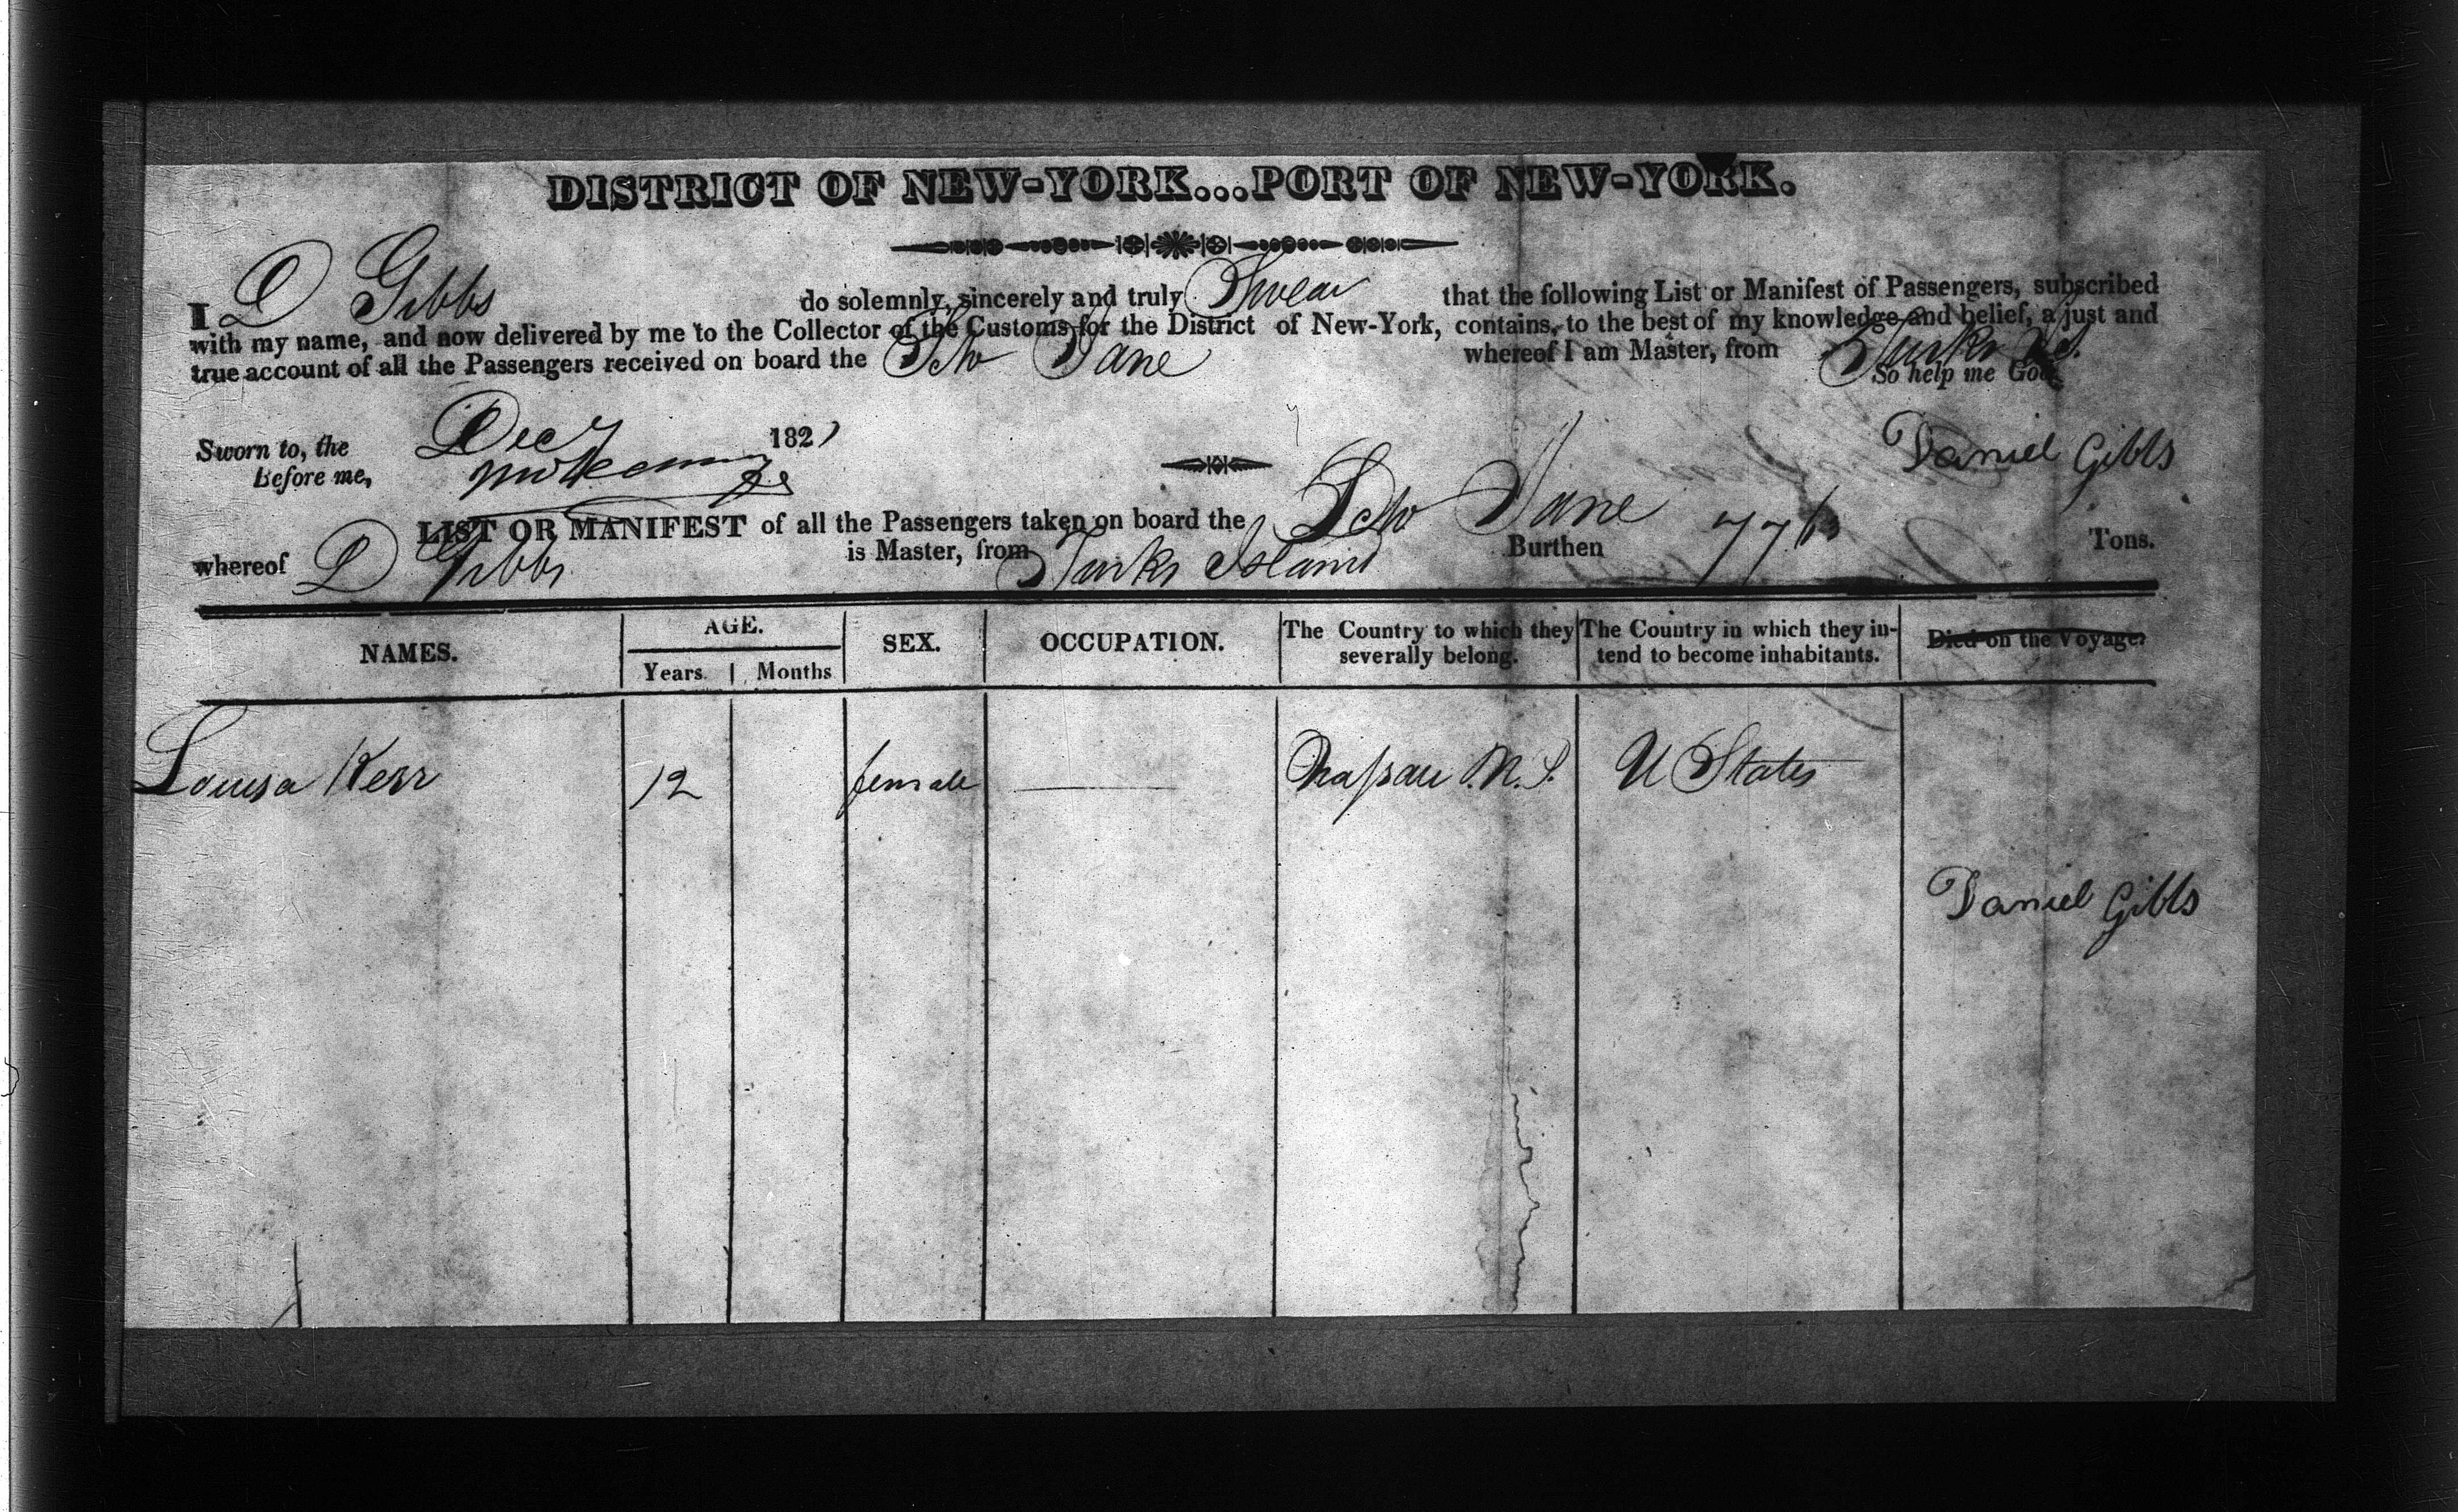 DISTRICT OF NEW-YORK...PORT OF NEW-YORK.
I D Gibbs do solemnly, sincerely and truly Swear that the following List or Manifest of Passengers, subscribed
with my name, and now delivered by me to the Collector of the Customs for the District of New-York, contains, to the best of my knowledge and belief, a just and
true account of all the Passengers received on board the Schr Jane whereof I am Master, from Turks Isd.
So help me God.
Sworn to, the Dec 7 182
Before me,
Daniel Gibbs
LIST OR MANIFEST of all the Passengers taken on board the Schr Jane
whereof D Gibbs is Master, from Turks Island Burthen 77 Tons.
NAMES. AGE. SEX. OCCUPATION. The Country to which they severally belong. The Country in which they intend to become inhabitants. Died on the Voyage.
Years. Months
Louisa Kerr 12 female Nassau N. P. U States
Daniel Gibbs